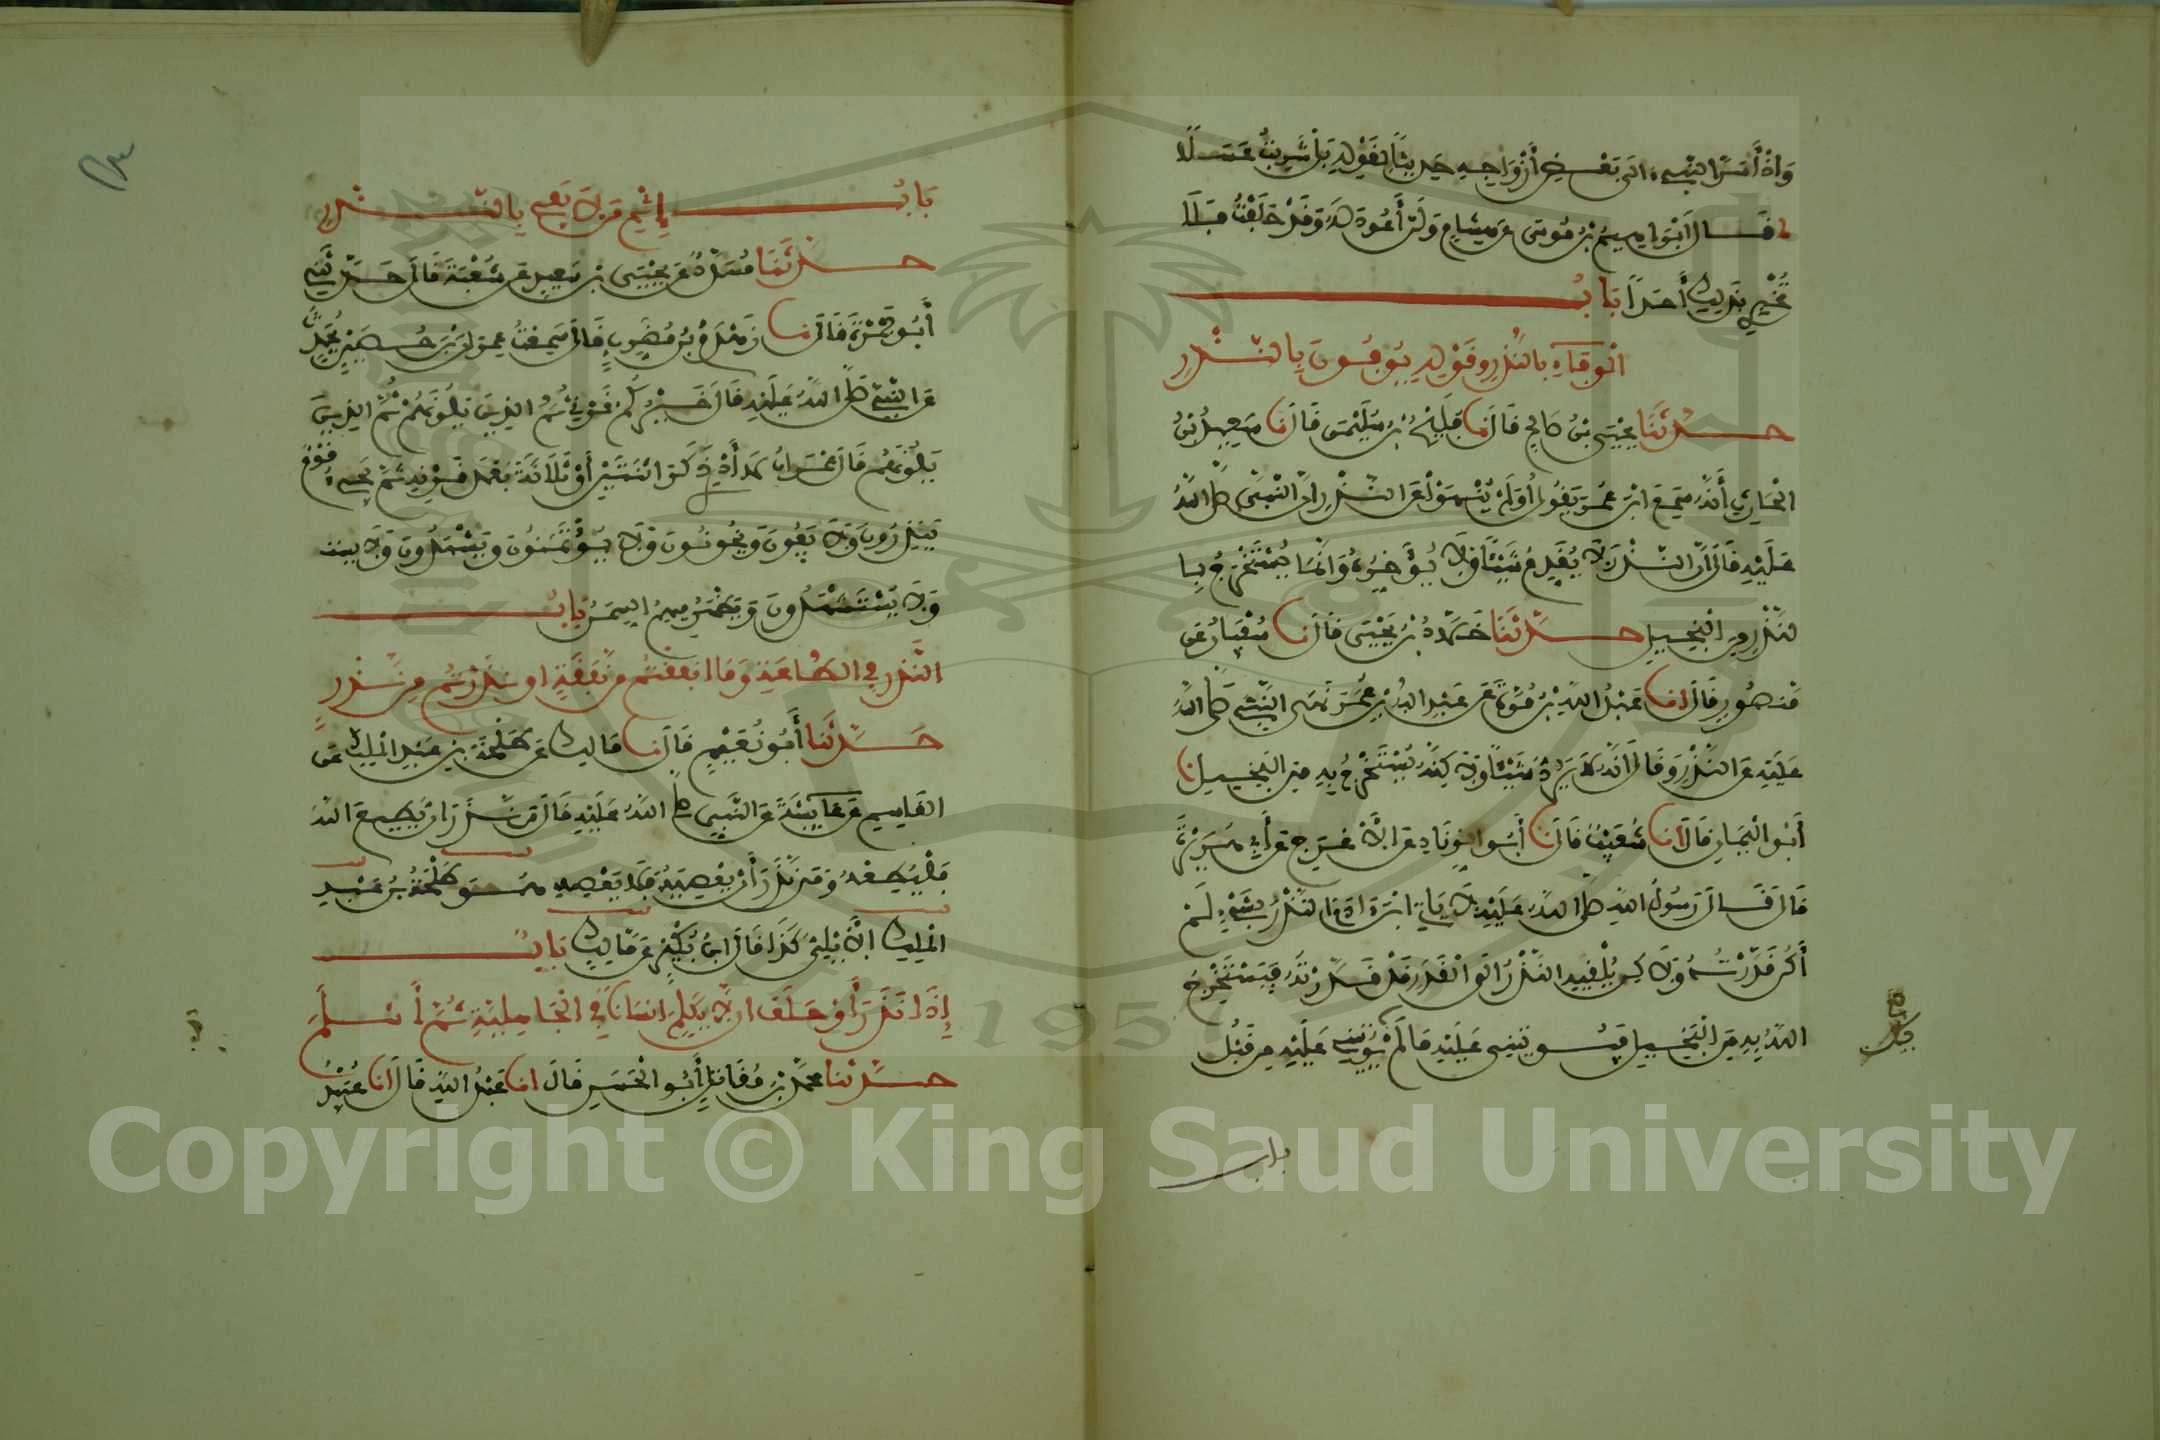 وَإِذْ أَسَرَّ النَّبِيءُ إِلَى بَعْضِ أَزْوَاجِهِ حَدِيثًا لِقَوْلِهِ بَلْ شَرِبْتُ عَسَلًا
قَالَ إِبْرَاهِيمُ بْنُ مُوسَى عَن هِشَامٍ وَلَنْ أَعُودَ لَهُ وَقَدْ حَلَفْتُ فَلَا
تُخْبِرِي بِذَلِكَ أَحَدًا بَابُ
الْوَفَاءِ بِالنَّذْرِ وقَوْلِهِ يُوفُونَ بِالنَّذْرِ
حَدَّثَنَا يَحْيَى بْنُ صَالِحٍ قَالَ نَا فُلَيْحُ بْنُ سُلَيْمَنَ قَالَ نَا سَعِيدُ بْنُ
الْحَارِثِ أَنَّهُ سَمِعَ ابْنَ عُمَرَ يَقُولُ أَوَلَمْ يُنْهَوْا عَنِ النَّذْرِ إِنَّ النَّبِيَّ صَلَّى اللهُ
عَلَيْهِ قَالَ إِنَّ النَّذْرَ لَا يُقَدِّمُ شَيْئًا وَلَا يُؤَخِّرُهُ وَإِنَّمَا يُسْتَخْرَجُ بِا
لنَّذْرِ مِنَ الْبَخِيلِ حَدَّثَنَا خَلَّادُ بْنُ يَحْيَى قَالَ نا سُفْيَانُ عَن
مَنْصُورٍ قَالَ انا عَبْدُ اللهِ بْنُ مُرَّةَ عَن عَبْدِ اللهِ بْنِ عُمَرَ نَهَى النَّبِيُّ صَلَّى اللهُ
عَلَيْهِ عَنِ النَّذْرِ وَقَالَ إِنَّهُ لَا يَرُدُّ شَيْئًا وَلَا كِنَّهُ يُسْتَخْرَجُ بِهِ مِنَ الْبَخِيلِ نا
أَبُو الْيَمَانِ قَالَ أنا شُعَيْبٌ قَالَ نَا أَبُو الزِّنَادِ عَنِ الْأَعْرَجِ عَن أَبِي هُرَيْرَةَ
قَالَ قَالَ رَسُولُ اللهِ صَلَّى اللهُ عَلَيْهِ لَا يَاتِي ابْنَ ءَادَمَ النَّذْرُ بِشَيْءٍ لَمْ
أَكُن قَدَّرْتُهُ وَلَا كِن يُلْقِيهِ النَّذْرُ إِلَى الْقَدَرِ قَدْ قَدَّرْتُهُ فَيَسْتَخْرِجُ
اللهُ بِهِ مِنَ الْبَخِيلِ فَيُوتِينِي عَلَيْهِ مَا لَمْ يُوتِينِي عَلَيْهِ مِن قَبْلُ
باب
بَابُ إِثْمِ مَن لَا يَفِي بِالنَّذْرِ
حَدَّثَنَا مُسَدَّدٌ عَن يَحْيَى بْنِ سَعِيدٍ عَن شُعْبَةَ قَالَ حَدَّثَنِي
أَبُو جَمْرَةَ قَالَ نا زَهْدَمُ بْنُ مُضَرِّبٍ قَالَ سَمِعْتُ عِمْرَانَ بْنَ حُصَيْنٍ يُحَدِّثُ
عَنِ النَّبِيِّ صَلَّى اللهُ عَلَيْهِ قَالَ خَيْرُكُمْ قَرْنِي ثُمَّ الذِينَ يَلُونَهُمْ ثُمَّ الذِينَ
يَلُونَهُم قَالَ عِمْرَانُ لَا أَدْرِي ذَكَرَ اثْنَتَيْنِ أَوْ ثَلَاثَةً بَعْدَ قَرْنِهِ ثُمَّ يَجِيءُ قَوْمٌ
يَنْذِرُونَ وَلَا يَفُونَ وَيَخُونُونَ وَلَا يُؤْتَمَنُونَ وَيَشْهَدُونَ وَلَا يستـ
وَلَا يُسْتَشْهَدُونَ وَيَظْهَرُ فِيهِمُ السِّمَنُ بَابُ
النَّذْرِ فِي الطَّاعَةِ وَمَا أنفَقْتُم مِّن نَّفَقَةٍ أو نَذَرْتُم مِّن نَّذْرٍ
حَدَّثَنَا أَبُو نُعَيْمٍ قَالَ نا مَالِكٌ عَن طَلْحَةَ بْنِ عَبْدِ الْمَلِكِ عَن
الْقَاسِمِ عَن عَائِشَةَ عَنِ النَّبِيِّ صلى اللهُ عَلَيْهِ قَالَ مَن نَذَرَ أَنْ يُطِيعَ اللهَ
فَلْيُطِعْهُ وَمَن نَذَرَ أَنْ يَعْصِيَهُ فَلَا يَعْصِهِ هُوَ طَلْحَةُ بْنُ عَبْدِ
الْمَلِكِ الْأَيْلِيُّ كَذَا قَالَ ابْنُ بُكَيْرٍ عَن مَالِكٍ بَابٌ
إِذَا نَذَرَ أَوْ حَلَفَ ان لَّا يُكَلِّمَ إِنسَانًا فِي الْجَاهِلِيَّةِ ثُمَّ أَسْلَمَ
حَدَّثَنَا مُحَمَّدُ بْنُ مُقَاتِلٍ أَبُو الْحَسَنِ قَالَ انا عَبْدُ اللهِ قَالَ أنا عُبَيْدُ